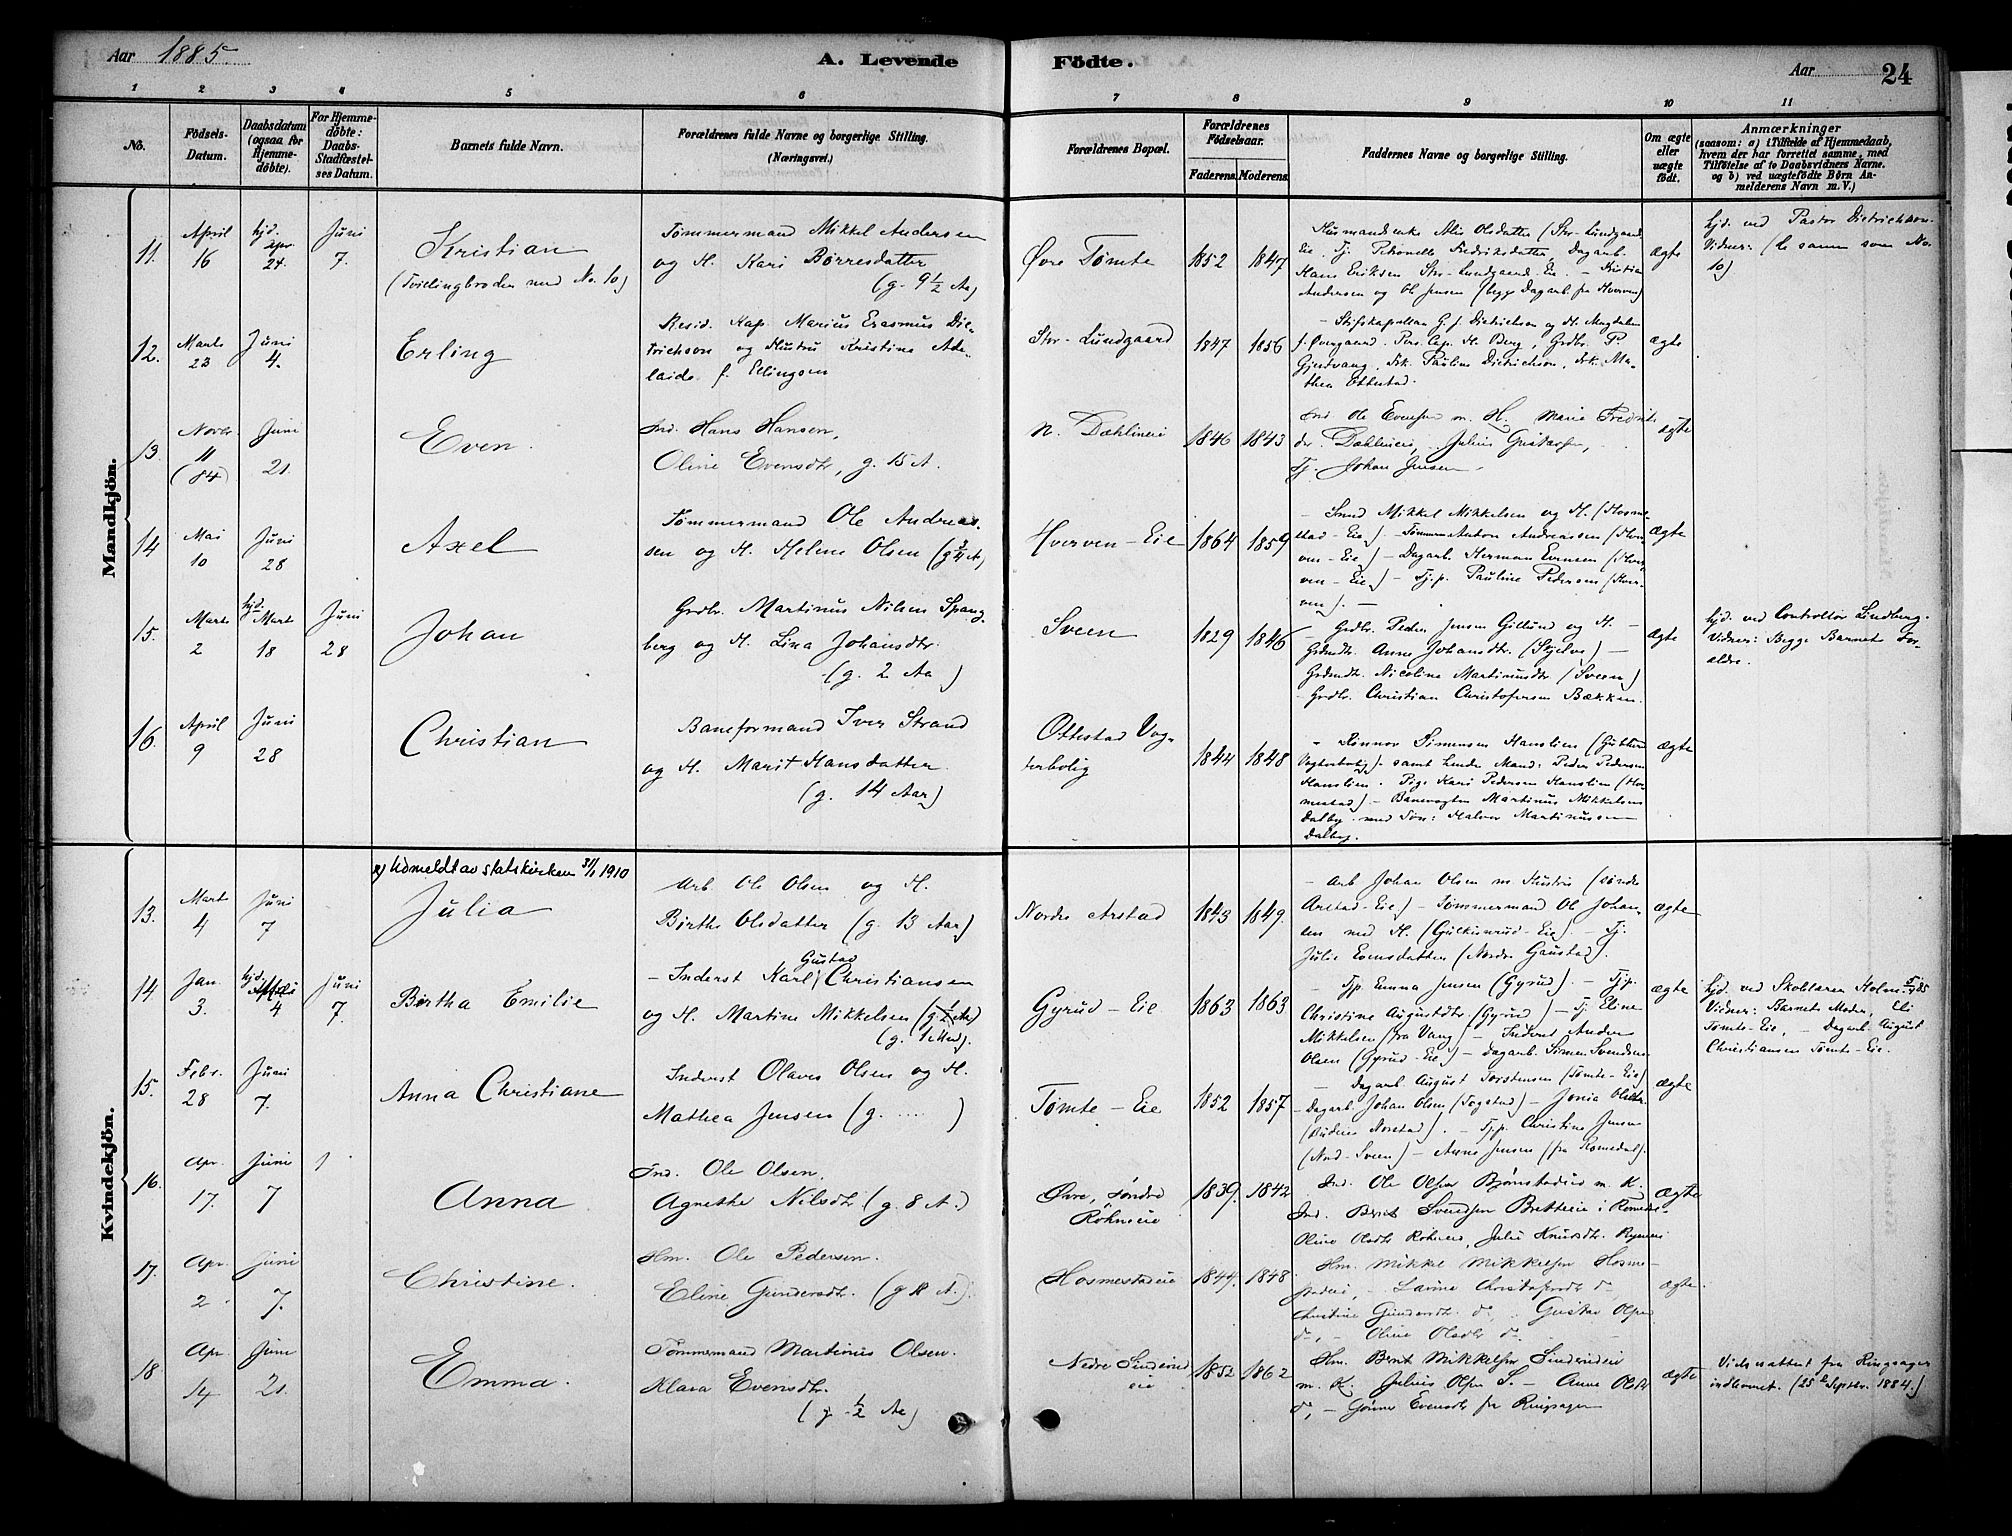 Aar 1885.
A. Levende Födte.
Aar
24
1 2 3 4 5 6 7 8 9 10 11
No.
Födsels-Datum.
Daabsdatum (ogsaa for Hjemmedöbte).
For Hjemmedöbte: Daabs-Stadfæstelses Datum.
Barnets fulde Navn.
Forældrenes fulde Navne og borgerlige Stilling. (Næringsvei.)
Forældrenes Bopæl.
Forældrenes Födselsaar.
Faderens. Moderens.
Faddernes Navne og borgerlige Stilling.
Om ægte eller uægte født.
Anmærkninger
(saasom: a) i Tilfælde af Hjemmedaab, hvem der har forrettet samme, med Tilföielse af to Daabsvidners Navne. og b) ved uægtefödte Börn Anmelderens Navn m.V.)
Mandkjön.
11. April 16 hjd. Apr. 24. Juni 7.
Kristian
(Tvillingbroder med No. 10)
Tømmermand Mikkel Andersen
og H. Kari Børresdatter
(g. 9 1/2 Aa)
Øvre Tømte 1852 1847
Husmandsenke Olsdatter (Str-Lundgaard
Eie. Tj. Petronelle Fredriksdatter, Dagarb.
Hans Eriksen Str-Lundgaard-Eie. - Kristian
Andersen og Ole Jensen (begge Dagarb. fra Hverven)
ægte
hjd. ved Pastor Dietrichson.
Vidner: (de samme som No.
10)
12. Marts 23 Juni 4.
Erling
Resid. Kap. Marius Erasmus Die-
trichson og Hustru Kristine Ade-
laide f. Ellingsen
Str-Lundgaard 1847 1856
- Stiftskapellan G. J. Dietrichson og H. Magdalen
f. Overgaard. Pers. Cap. H. Berg, Grdbr. P.
Gjerdvang, Frk. Pauline Dietrichson, Frk. Ma-
thea Ottestad.
ægte
13. Novbr. 11 (84) Juni 21.
Even.
Ind. Hans Hansen,
Oline Evensdtr, g. 15 A.
N. Dæhlineie 1846 1843
Ind Ole Evensen m. H. Marie Fredriks
dr. Dæhlineie, Julius Gustavsen,
Tj. Johan Jensen.
ægte
14 Mai 10 Juni 28
Axel
Tømmermand Ole Andreas-
sen og H. Helene Olsen (g 3/4 A)
Hverven-Eie 1864 1859
- Smed Mikkel Mikkelsen og H. (Hosme-
stad-Eie) - Tømmerm Anton Andreassen (Hver-
ven-Eie) - Dagarb. Herman Evensen (Hver-
ven-Eie) - Tj.p. Pauline Pedersen (Hver-
ven). -
ægte
15. Marts 2 hjd. Marts 18 Juni 28
Johan
Grdbr. Martinus Nilsen Spang
berg og H. Lina Johansdtr.
(g. 2 Aa)
Sveen 1829 1846
- Grdbr. Peder Jensen Gillund og H. -
Grdmdtr. Anne Johansdtr. (Skjelve) -
Grdmdtr. Nicoline Martinusdtr (Sveen)
- Grdbr. Christian Christofersen Bækken.
ægte
hjd. ved Controllør Lindberg.
Vidner: Begge Barnets For-
ældre.
16. April 9 Juni 28
Christian
Baneformand Iver Strand
og H. Marit Hansdatter
(g. 14 Aar)
Ottestad Vog-
terbolig 1844 1848
- Rønnov Simensen Hanslien (Gutter
Vogterbolig) samt hendes Mand: Peder Pedersen
Hanslien. Pige Kari Pedersen Hanslien (Hos-
mestad) - Banevogter Martinus Mikkelsen
Dalby. med Søn: Halvor Martinussen
Dalby.
ægte
Kvindekjön.
x) Udmeldt av statskirken 31/1 1910
13. Marts 4 Juni 7
Julia
Arb. Ole Olsen og H.
Birthe Olsdatter (g. 13 Aar)
Nordre Arstad 1843 1849.
- Arb Johan Olsen m. Hustru (søndre
Arstad-Eie) - Tømmermand Ole Johan-
sen med H. (Gulkinrud-Eie). - Tj.
Julie Evensdatter (Nordre Gaustad).
ægte
14 Jan. 3. hjd. 4 Juni 7.
Birtha Emilie
- Inderst Karl Gustav Christiansen
og H. Martine Mikkelsen (g 1/2 Aa)
(g. 1 Mnd).
Gyrud-Eie 1863 1863
- Tjp Emma Jensen (Gyrud). - Tj.p.
Christine Augustdtr. (Gyrud) - Tj. Eline
Mikkelsen (fra Vang) - Inderst Anders
Olsen (Gyrud-Eie) - Dagarb. Simen Svendsen
ægte
hjd. ved Skolelærer Holm
Vidner: Barnets Moder, Eli
Tømte-Eie, - Dagarb. August
Christiansen Tømte-Eie.
15. Febr. 28 Juni 7.
Anna Christiane
Inderst Olaves Olsen og H.
Mathea Jensen (g. .... )
Tømte-Eie 1852 1857
- Dagarb. August Torstensen (Tømte-Eie)
- Dagarb. Johan Olsen (Fogstad) - Jonia Olsdtr.
(Audnes Norstad). - Tj.p. Christine Jensen
(And-Sveen) - Anne Jensen (fra Romedal).
ægte
16. Apr. 17. Juni 7
Anna
Ind. Ole Olsen,
Agnethe Nilsdtr (g. 8 A.)
Øvre, søndre
Røhneeie 1839. 1842
Ind. Ole Olsen Bjørnstadeie m. K.
Ind. Bernt Svendsen Bretteeie i Romedal
Oline Olsdtr Røhneeie, Julie Knudsdtr.
ægte
17. Apr. 2 Juni 7.
Christine.
Hm. Ole Pedersen.
Eline Gundersdtr. (g 18 A.).
Hosmestadeie 1844. 1848
Hm. Mikkel Mikkelsen Hosme-
stadeie, - Lavine Christofersdtr do,
Christine Gundersdtr. do, Gustav Olsen
do, - Oline Olsdtr do.
ægte
18 Apr. 14 Juni 21.
Emma.
Tømmermand Martinus Olsen.
Klara Evensdtr.
(g. 1/2 Aa)
Nedre Sinderud
eie 1852 1862
Hm. Bernt Mikkelsen Sinderudeie
m. K. Julius Olsen S. - Anne Olsdtr
do, - Gunne Evensdtr fra Ringsager
ægte
Vielsesattest fra Ringsager
indkommet. (25de Septbr. 1884.)